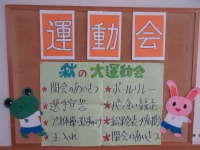 運動会
秋の大運動会
★開会のあいさつ
★選手宣誓
★玉入れ
★ボールリレー
★パン食い競走
★閉会のあいさつ